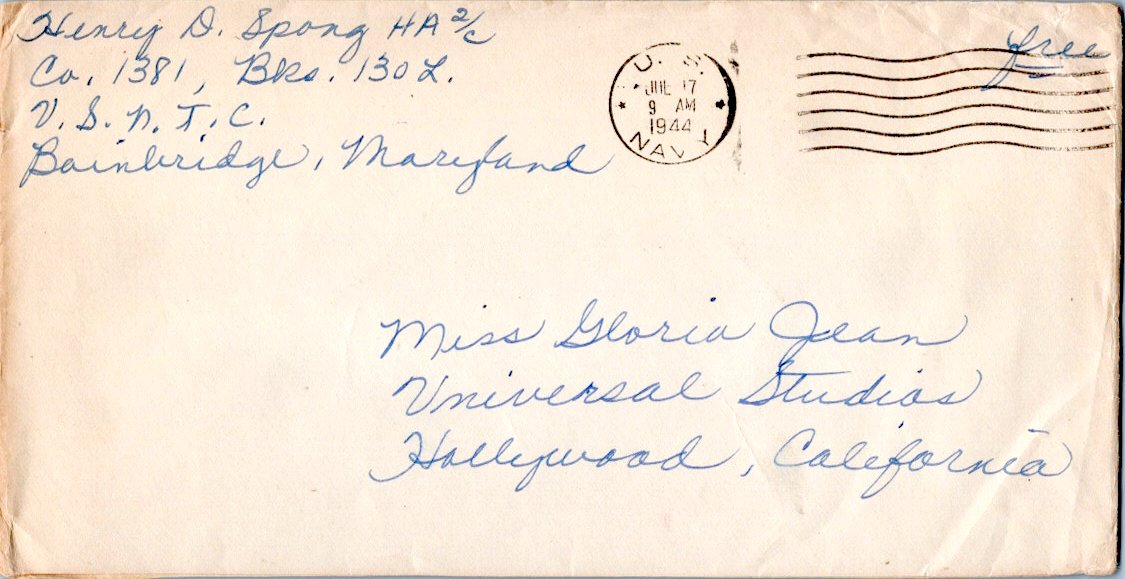 Henry D. Spong HA 2/c
Co. 1381, Bks. 130 L.
U.S.N.T.C.
Bainbridge, Maryland
U. S.
JUL 17
9 AM
1944
NAVY
free
Miss Gloria Jean
Universal Studios
Hollywood, California